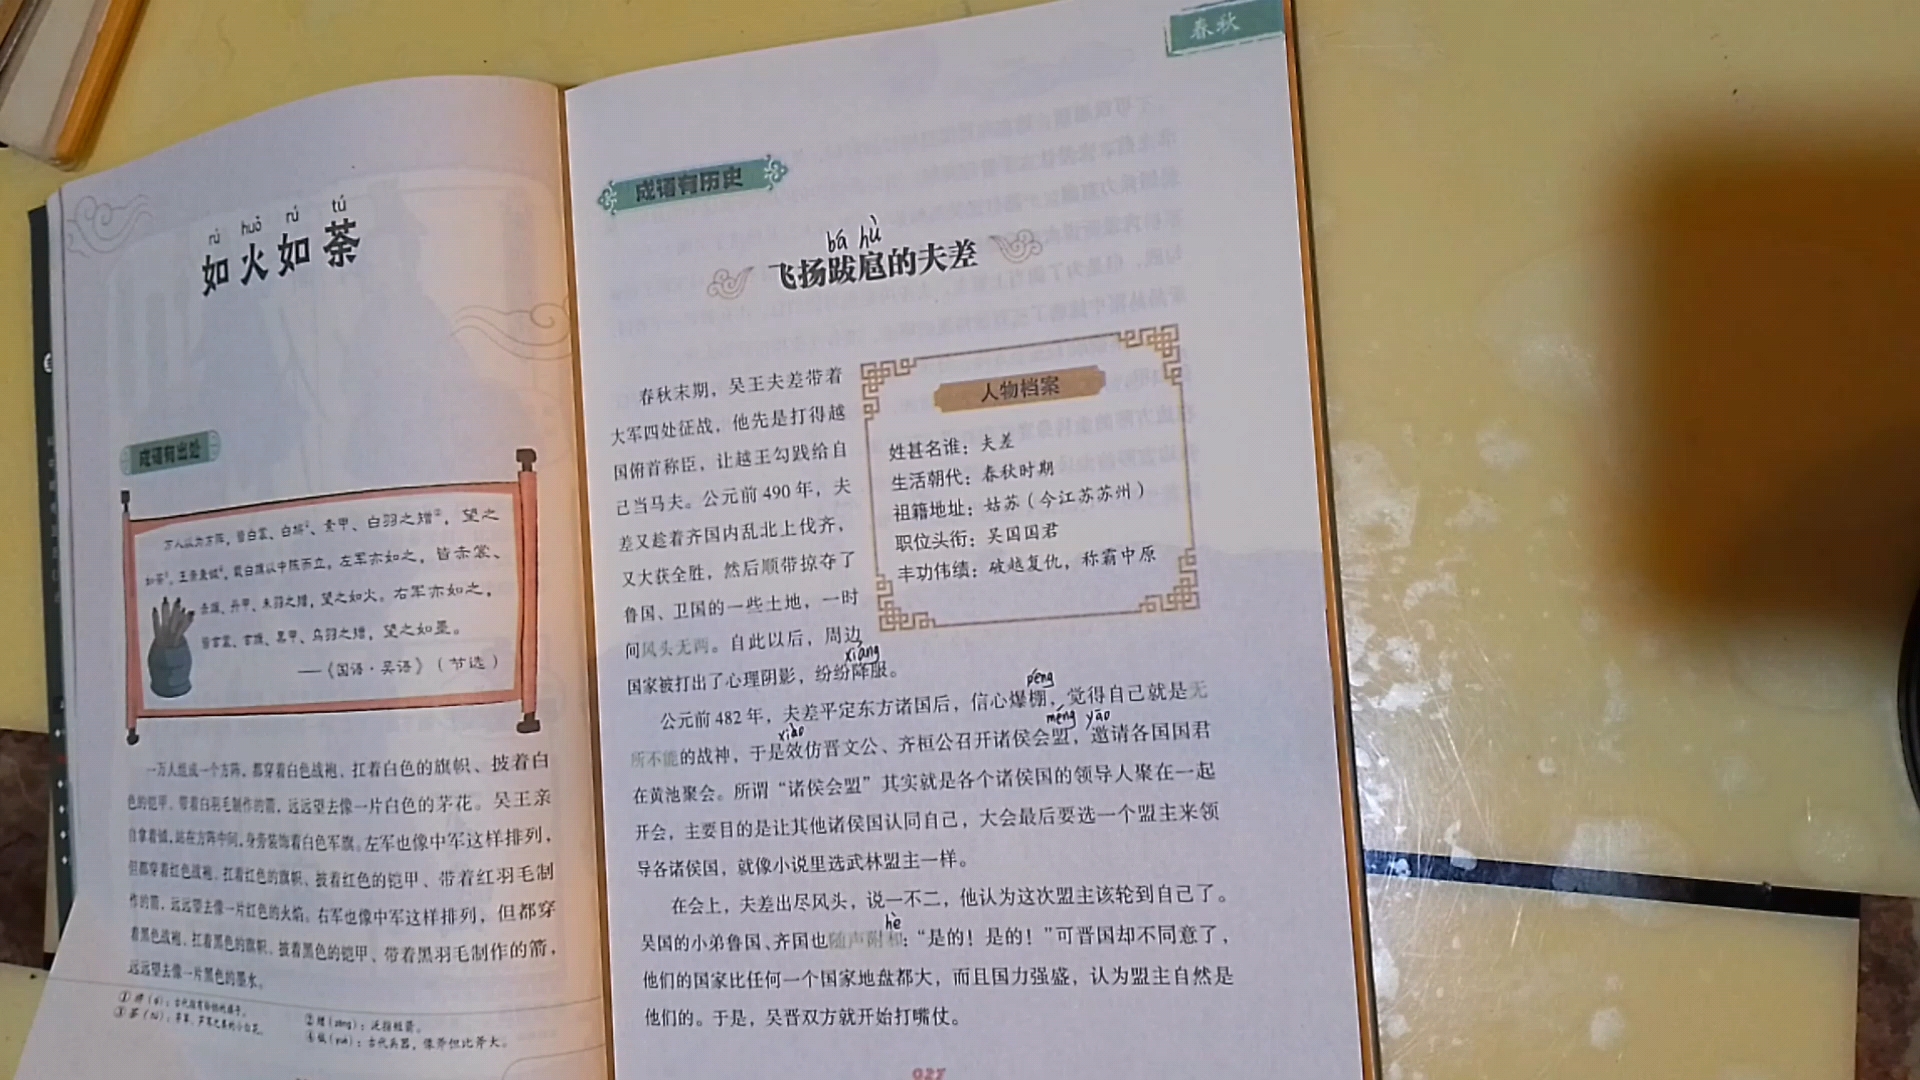 rú huǒ rú tú
如火如荼
成语有出处
万人以为方阵，皆白裳、白旂①、素甲、白羽之矰②，望之
如荼③。王亲秉钺④，载白旗以中陈而立。左军亦如之，皆赤裳、
赤旟、丹甲、朱羽之矰，望之如火。右军亦如之，
皆玄裳、玄旗、黑甲、乌羽之矰，望之如墨。
——《国语·吴语》（节选）
一万人组成一个方阵，都穿着白色战袍、扛着白色的旗帜、披着白
色的铠甲、带着白羽毛制作的箭，远远望去像一片白色的茅花。吴王亲
自拿着钺，站在方阵中间，身旁装饰着白色军旗。左军也像中军这样排列，
但都穿着红色战袍、扛着红色的旗帜、披着红色的铠甲、带着红羽毛制
作的箭，远远望去像一片红色的火焰。右军也像中军这样排列，但都穿
着黑色战袍、扛着黑色的旗帜、披着黑色的铠甲、带着黑羽毛制作的箭，
远远望去像一片黑色的墨水。
②矰（zēng）：泛指短箭。
④钺（yuè）：古代兵器，像斧但比斧大。
春秋
成语有历史
bá hù
飞扬跋扈的夫差
人物档案
姓甚名谁：夫差
生活朝代：春秋时期
祖籍地址：姑苏（今江苏苏州）
职位头衔：吴国国君
丰功伟绩：破越复仇，称霸中原
春秋末期，吴王夫差带着
大军四处征战，他先是打得越
国俯首称臣，让越王勾践给自
己当马夫。公元前490年，夫
差又趁着齐国内乱北上伐齐，
又大获全胜，然后顺带掠夺了
鲁国、卫国的一些土地，一时
间风头无两。自此以后，周边
xiáng
国家被打出了心理阴影，纷纷降服。
péng
公元前482年，夫差平定东方诸国后，信心爆棚，觉得自己就是无
xiào méng yāo
所不能的战神，于是效仿晋文公、齐桓公召开诸侯会盟，邀请各国国君
在黄池聚会。所谓“诸侯会盟”其实就是各个诸侯国的领导人聚在一起
开会，主要目的是让其他诸侯国认同自己，大会最后要选一个盟主来领
导各诸侯国，就像小说里选武林盟主一样。
在会上，夫差出尽风头，说一不二，他认为这次盟主该轮到自己了。
hè
吴国的小弟鲁国、齐国也随声附和：“是的！是的！”可晋国却不同意了，
他们的国家比任何一个国家地盘都大，而且国力强盛，认为盟主自然是
他们的。于是，吴晋双方就开始打嘴仗。
027